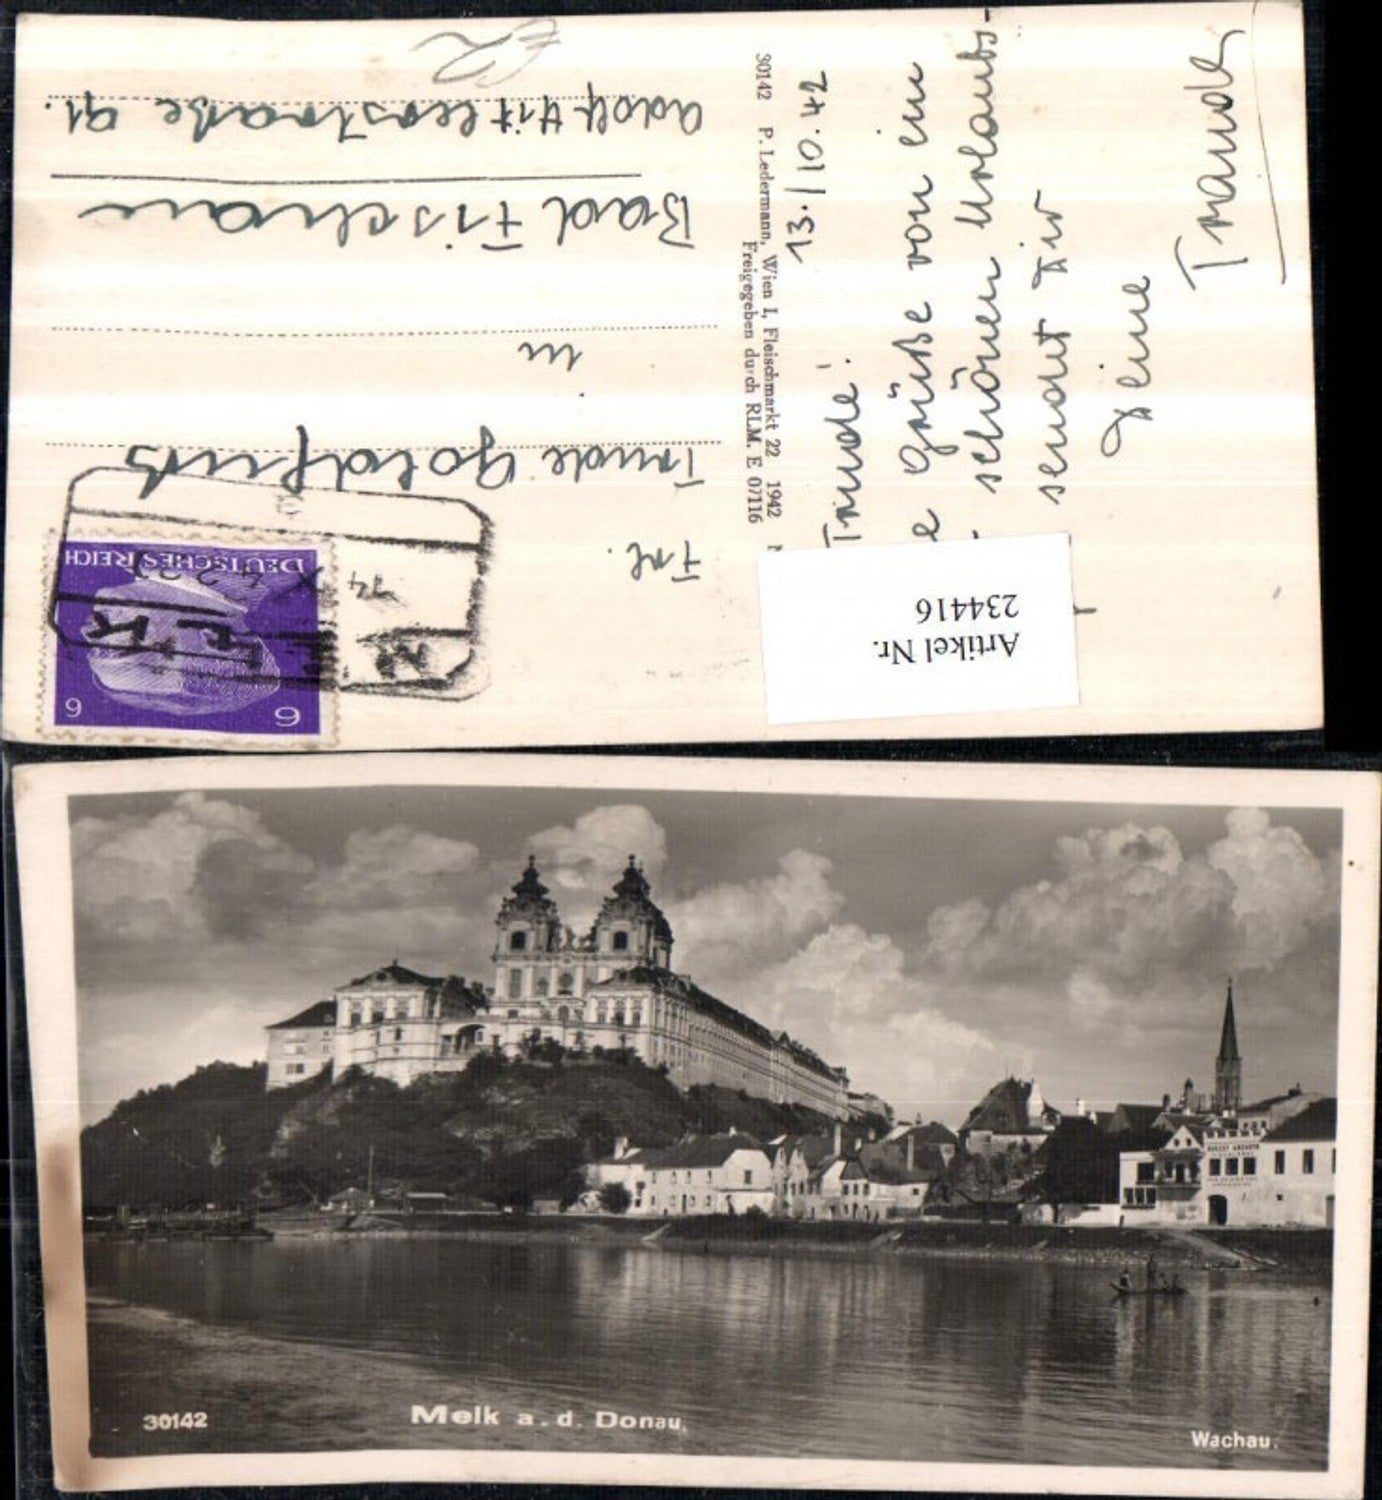 13./10.42
Trude!
Grüße von ein
schönen Urlaubs-
sendet Dir
Deine
Traude
30142 P. Ledermann, Wien I, Fleischmarkt 22 1942
Freigegeben durch RLM. E 07116
Frl.
Trude
in
Bad Fischau
Adolf Hitlerstraße 91.
DEUTSCHES REICH
6 6
Artikel Nr.
234416
30142
Melk a. d. Donau.
Wachau.